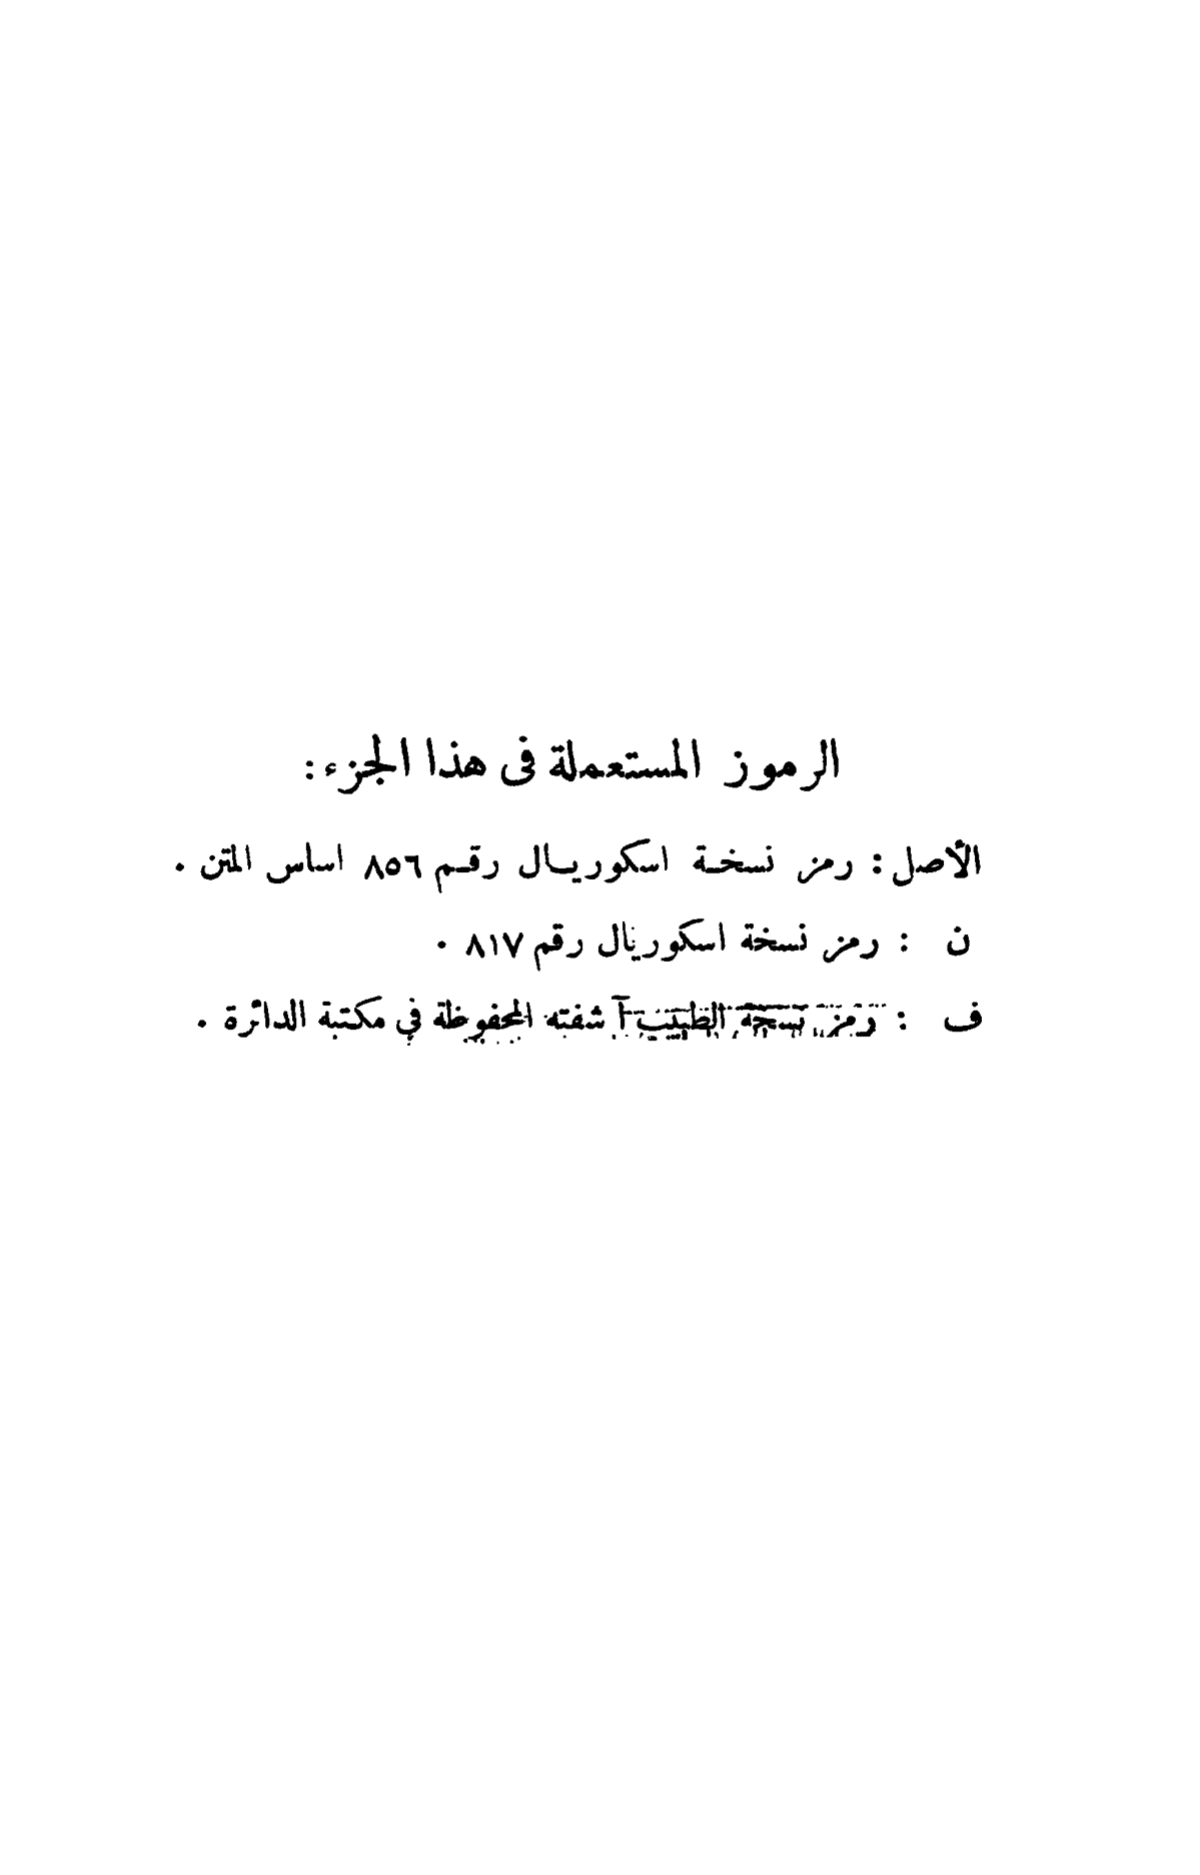 الرموز المستعملة فى هذا الجزء :
الأصل : رمز نسخـة اسكوريـال رقـم ٨٥٦ اساس المتن .
ن : رمز نسخة اسكوريال رقم ٨١٧ .
ف : رمز نسخة الطبيب آشفته المحفوظة في مكتبة الدائرة .